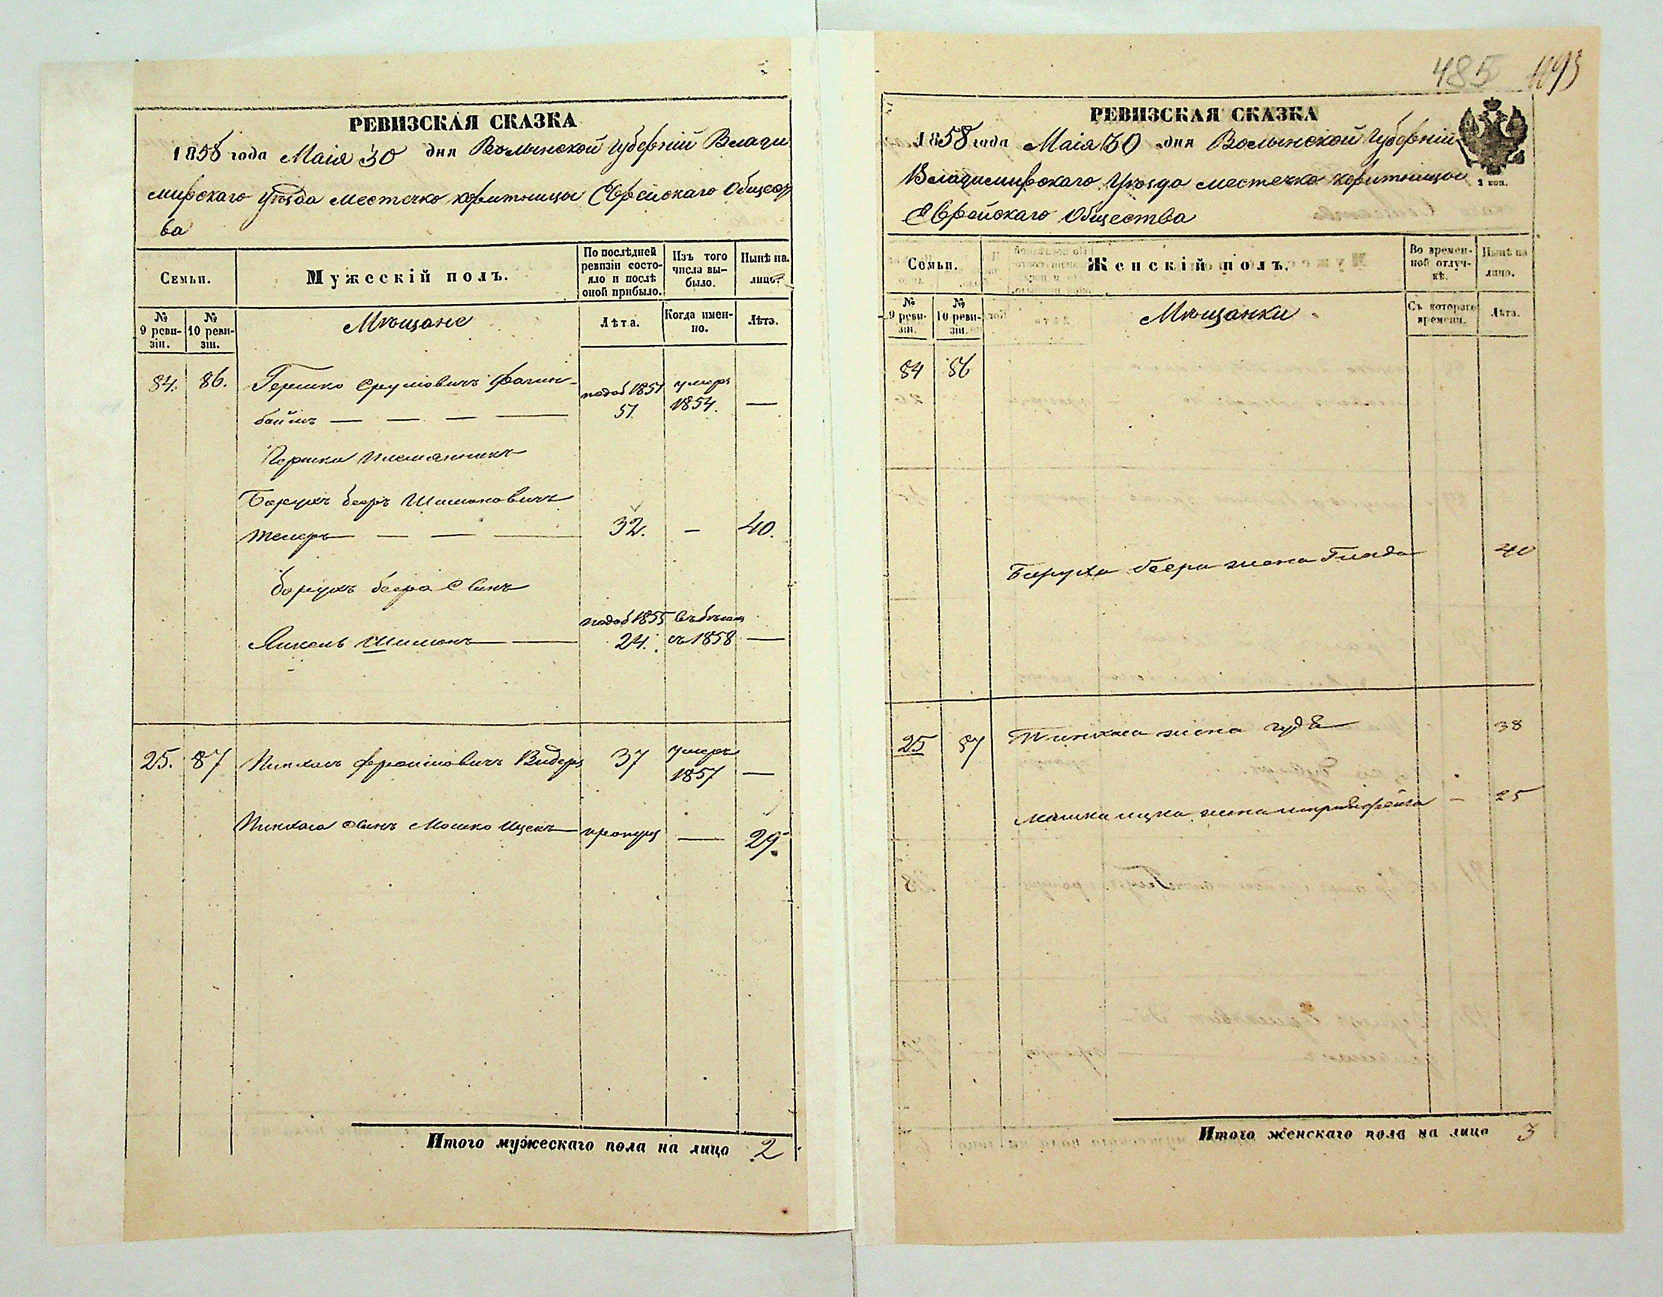 РЕВИЗСКАЯ СКАЗКА
1858 года Маія 30 дня Волынской Губерніи Влади
мирскаго Уѣзда Местечка Корытницы Еврейскаго Общест
ва
Семьи.
Мужескій полъ.
По послѣдней ревизіи состояло и послѣ оной прибыло.
Изъ того числа выбыло.
Нынѣ на лицо.
№ 9 ревизіи.
№ 10 ревизіи.
Мѣщане
Лѣта.
Когда именно.
Лѣта.
84. 86. Гершко Срулевичъ Фаин- 1851 умеръ
баймъ — — — 51. 1854. —
Гершка племянникъ
Борухъ Бееръ Шимоновичъ
— — — 32. — 40.
Борухъ Беера сынъ
1855
Янкель Шимонъ — 24. съ 1858 —
25. 87 Пинхасъ 37 умеръ
1857 —
Пинхаса сынъ Мошко Ицекъ — пропущ — 29.
Итого мужескаго пола на лицо 2
485 1093
РЕВИЗСКАЯ СКАЗКА
1858 года Маія 30 дня Волынской Губерніи
Владимирскаго Уѣзда местечка Корытницы
Еврейскаго Общества
2 коп.
Семьи.
Женскій полъ.
Во временной отлучкѣ.
Нынѣ на лицо.
№ 9 ревизіи.
№ 10 ревизіи.
Мѣщанки
Съ котораго времени.
Лѣта.
84 86
Боруха Беера жена 40
25 87 Пинхаса жена 38
Мошка Ицка жена — 25
Итого женскаго пола на лицо 3